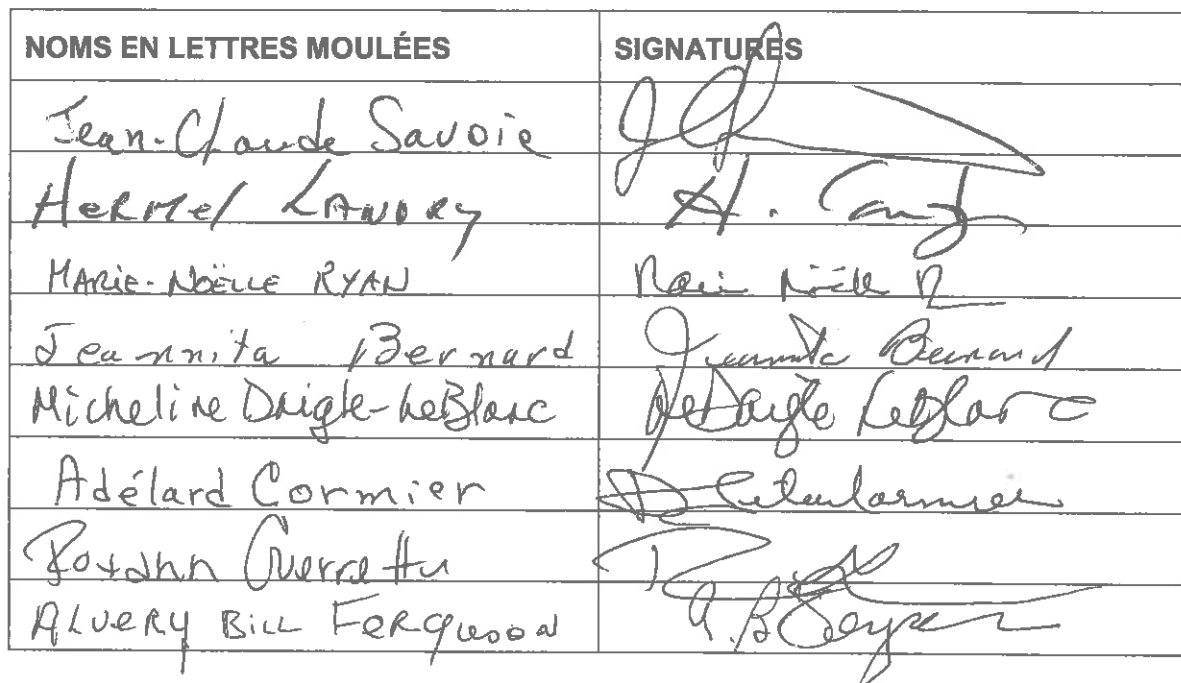 NOMS EN LETTRES MOULÉES SIGNATURES
Jean-Claude Savoie
Hermel LANDRY H.
MARIE-NOËLLE RYAN Marie Noëlle R
Jeannita Bernard Jeannita Bernard
Micheline Daigle-LeBlanc Daigle LeBlanc
Adélard Cormier
Roxann Guerrette
ALVERY BILL FERGUSON A.B.